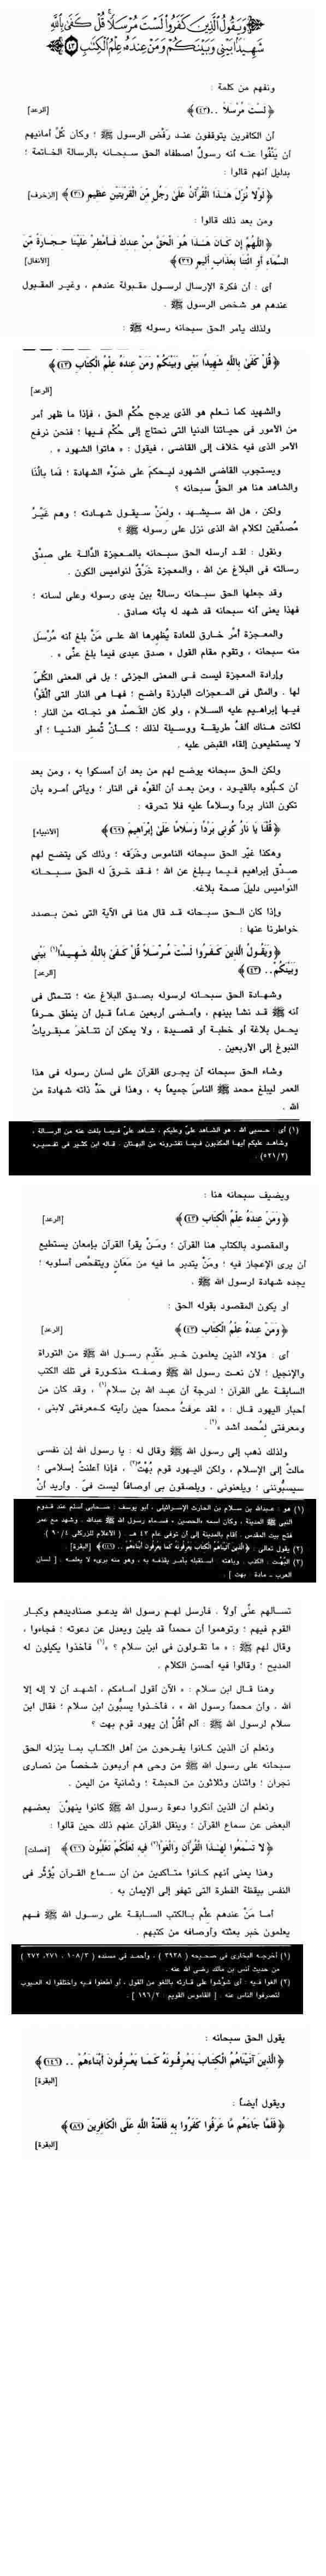 ﴿وَيَقُولُ الَّذِينَ كَفَرُوا لَسْتَ مُرْسَلًا قُلْ كَفَىٰ بِاللَّهِ
شَهِيدًا بَيْنِي وَبَيْنَكُمْ وَمَنْ عِندَهُ عِلْمُ الْكِتَابِ ﴿٤٣﴾
ونفهم من كلمة :
﴿ لَسْتَ مُرْسَلاً .. (٤٣) ﴾ [الرعد]
أن الكافرين يتوقفون عند رَفْض الرسول ﷺ ؛ وكأن كُلَّ أمانيهم
أن يَنْفُوا عنه أنه رسولٌ اصطفاه الحق سبحانه بالرسالة الخاتمة ؛
بدليل أنهم قالوا :
﴿ لَوْلَا نُزِّلَ هَـٰذَا الْقُرْآنُ عَلَىٰ رَجُلٍ مِّنَ الْقَرْيَتَيْنِ عَظِيمٍ (٣١) ﴾ [الزخرف]
ومن بعد ذلك قالوا :
﴿ اللَّهُمَّ إِن كَانَ هَـٰذَا هُوَ الْحَقَّ مِنْ عِندِكَ فَأَمْطِرْ عَلَيْنَا حِجَارَةً مِّنَ
السَّمَاءِ أَوِ ائْتِنَا بِعَذَابٍ أَلِيمٍ (٣٢) ﴾ [الأنفال]
أى : أن فكرة الإرسال لرسول مقبولة عندهم ، وغير المقبول
عندهم هو شخص الرسول ﷺ .
ولذلك يأمر الحق سبحانه رسوله ﷺ :
﴿ قُلْ كَفَىٰ بِاللَّهِ شَهِيدًا بَيْنِي وَبَيْنَكُمْ وَمَنْ عِندَهُ عِلْمُ الْكِتَابِ (٤٣) ﴾
[الرعد]
والشهيد كما نعلم هو الذى يرجح حُكْم الحق ، فإذا ما ظهر أمر
من الأمور فى حياتنا الدنيا التى نحتاج إلى حُكْم فيها ؛ فنحن نرفع
الأمر الذى فيه خلاف إلى القاضى ، فيقول : « هاتوا الشهود » .
ويستجوب القاضى الشهود ليحكمَ على ضَوْء الشهادة ؛ فَما بالُنَا
والشاهد هنا هو الحقُّ سبحانه ؟
ولكن ، هل الله سيشهد ، ولِمَنْ سيقول شهادته ؛ وهم غَيْرُ
مُصدِّقين لكلام الله الذى نزل على رسوله ﷺ ؟
ونقول : لقد أرسله الحق سبحانه بالمعجزة الدَّالة على صِدْق
رسالته فى البلاغ عن الله ، والمعجزة خَرْقٌ لنواميس الكون .
وقد جعلها الحق سبحانه رسالةً بين يدى رسوله وعلى لسانه ؛
فهذا يعنى أنه سبحانه قد شهد له بأنه صادق .
والمعجزة أمْر خارق للعادة يُظهِرها الله على مَنْ بلغ أنه مُرْسَل
منه سبحانه ، وتقوم مقام القول « صدق عبدى فيما بلغ عنِّى » .
وإرادة المعجزة ليست فى المعنى الجزئى ؛ بل فى المعنى الكُلىّ
لها . والمثل فى المعجزات البارزة واضح ؛ فها هى النار التى ألقَوْا
فيها إبراهيم عليه السلام ، ولو كان القَصْد هو نجاته من النار ؛
لكانت هناك ألفُ طريقة ووسيلة لذلك ؛ كأنْ تُمطِر الدنيا ؛ أو
لا يستطيعون إلقاء القبض عليه .
ولكن الحق سبحانه يوضح لهم من بعد أن أمسكوا به ، ومن بعد
أن كبَّلوه بالقيود ، ومن بعد أن ألقوْه فى النار ؛ ويأتى أمره بأن
تكون النار برداً وسلاماً عليه فلا تحرقه :
﴿ قُلْنَا يَا نَارُ كُونِي بَرْدًا وَسَلَامًا عَلَىٰ إِبْرَاهِيمَ (٦٩) ﴾ [الأنبياء]
وهكذا غيّر الحق سبحانه الناموس وخَرَقه ؛ وذلك كى يتضح لهم
صِدْق إبراهيم فيما يبلغ عن الله ؛ فقد خرق له الحق سبحانه
النواميس دليلَ صدق بلاغه.
وإذا كان الحق سبحانه قد قال هنا فى الآية التى نحن بصدد
خواطرنا عنها :
﴿ وَيَقُولُ الَّذِينَ كَفَرُوا لَسْتَ مُرْسَلاً قُلْ كَفَىٰ بِاللَّهِ شَهِيدًا(١) بَيْنِي
وَبَيْنَكُمْ .. (٤٣) ﴾ [الرعد]
وشهادة الحق سبحانه لرسوله بصدق البلاغ عنه ؛ تتمثل فى
أنه ﷺ قد نشأ بينهم ، وأمضى أربعين عاماً قبل أن ينطق حرفاً
يحمل بلاغة أو خطبة أو قصيدة ، ولا يمكن أن تتأخر عبقريات
النبوغ إلى الأربعين .
وشاء الحق سبحانه أن يجرى القرآن على لسان رسوله فى هذا
العمر ليبلغ محمد ﷺ الناسَ جميعاً به ، وهذا فى حَدِّ ذاته شهادة من
الله .
(١) أى : حسبى الله ، هو الشاهد علىّ وعليكم ، شاهد علىّ فيما بلغت عنه من الرسالة ،
وشاهد عليكم أيها المكذبون فيما تفترونه من البهتان . قاله ابن كثير فى تفسيره
(٥٢١/٢) .
ويضيف سبحانه هنا :
﴿ وَمَنْ عِندَهُ عِلْمُ الْكِتَابِ (٤٣) ﴾ [الرعد]
والمقصود بالكتاب هنا القرآن ؛ ومَنْ يقرأ القرآن بإمعان يستطيع
أن يرى الإعجاز فيه ؛ ومَنْ يتدبر ما فيه من مَعَانٍ ويتفحَّص أسلوبه ؛
يجده شهادة لرسول الله ﷺ .
أو يكون المقصود بقوله الحق :
﴿ وَمَنْ عِندَهُ عِلْمُ الْكِتَابِ (٤٣) ﴾ [الرعد]
أى : هؤلاء الذين يعلمون خبر مَقْدِم رسول الله ﷺ من التوراة
والإنجيل ؛ لأن نعت رسول الله ﷺ وصفته مذكورة فى تلك الكتب
السابقة على القرآن ؛ لدرجة أن عبد الله بن سلام(١) ، وقد كان من
أحبار اليهود قال : « لقد عرفتُ محمداً حين رأيته كمعرفتى لابنى ،
ومعرفتى لمُحمد أشد »(٢) .
ولذلك ذهب إلى رسول الله ﷺ وقال له : يا رسول الله إن نفسى
مالتْ إلى الإسلام ، ولكن اليهود قوم بُهْتٌ(٣) ، فإذا أعلنتُ إسلامى ؛
سيسبُّوننى ؛ ويلعنونى ، ويلصقون بى أوصافاً ليست فىّ . وأريد أنْ
(١) هو : عبدالله بن سلام بن الحارث الإسرائيلى ، أبو يوسف : صحابى أسلم عند قدوم
النبى ﷺ المدينة ، وكان اسمه «الحصين» ، فسماه رسول الله ﷺ عبدالله . وشهد مع عمر
فتح بيت المقدس . أقام بالمدينة إلى أن توفى عام ٤٣ هـ . ( الأعلام للزركلى ٩٠/٤ ) .
(٢) يقول تعالى : ﴿ الَّذِينَ آتَيْنَاهُمُ الْكِتَابَ يَعْرِفُونَهُ كَمَا يَعْرِفُونَ أَبْنَاءَهُمْ .. (١٤٦) ﴾ [البقرة] .
(٣) البُهْت : الكذب . وباهته : استقبله بأمر يقذفه به ، وهو منه برىء لا يعلمه . [ لسان
العرب - مادة : بهت ] .
تسألهم عنِّى أولاً . فأرسل لهم رسول الله يدعو صناديدهم وكبار
القوم فيهم ؛ وتوهموا أن محمداً قد يلين ويعدل عن دعوته ؛ فجاءوا ،
وقال لهم ﷺ : « ما تقولون فى ابن سلام ؟ »(١) فأخذوا يكيلون له
المديح ؛ وقالوا فيه أحسن الكلام .
وهنا قال ابن سلام : « الآن أقول أمامكم ، أشهد أن لا إله إلا
الله ، وأن محمداً رسول الله » ، فأخذوا يسبُّون ابن سلام ؛ فقال ابن
سلام لرسول الله ﷺ : ألم أقُلْ إن يهود قوم بهت ؟
ونعلم أن الذين كانوا يفرحون من أهل الكتاب بما ينزله الحق
سبحانه على رسول الله ﷺ من وحى هم أربعون شخصاً من نصارى
نجران ؛ واثنان وثلاثون من الحبشة ؛ وثمانية من اليمن .
ونعلم أن الذين أنكروا دعوة رسول الله ﷺ كانوا ينهوْنَ بعضهم
البعض عن سماع القرآن ؛ وينقل القرآن عنهم ذلك حين قالوا :
﴿ لا تَسْمَعُوا لِهَـٰذَا الْقُرْآنِ وَالْغَوْا(٢) فِيهِ لَعَلَّكُمْ تَغْلِبُونَ (٢٦) ﴾ [فصلت]
وهذا يعنى أنهم كانوا متأكدين من أن سماع القرآن يُؤثِّر فى
النفس بيقظة الفطرة التى تهفو إلى الإيمان به .
أما مَنْ عندهم عِلْم بالكتب السابقة على رسول الله ﷺ فهم
يعلمون خبر بعثته وأوصافه من كتبهم .
(١) أخرجه البخارى فى صحيحه ( ٣٩٣٨ ) ، وأحمد فى مسنده ( ١٠٨/٣ ، ٢٧١ ، ٢٧٢ )
من حديث أنس بن مالك رضى الله عنه .
(٢) الغوا فيه : أى شوِّشوا على قارئه باللغو من القول ، أو اطعنوا فيه واختلقوا له العيوب
لتصرفوا الناس عنه . [ القاموس القويم : ١٩٦/٢ ] .
يقول الحق سبحانه :
﴿ الَّذِينَ آتَيْنَاهُمُ الْكِتَابَ يَعْرِفُونَهُ كَمَا يَعْرِفُونَ أَبْنَاءَهُمْ .. (١٤٦) ﴾
[البقرة]
ويقول أيضاً :
﴿ فَلَمَّا جَاءَهُم مَّا عَرَفُوا كَفَرُوا بِهِ فَلَعْنَةُ اللَّهِ عَلَى الْكَافِرِينَ (٨٩) ﴾
[البقرة]